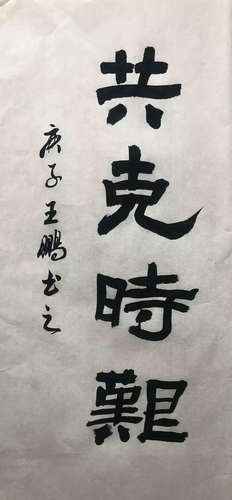 共克時艱
庚子王鵬书之